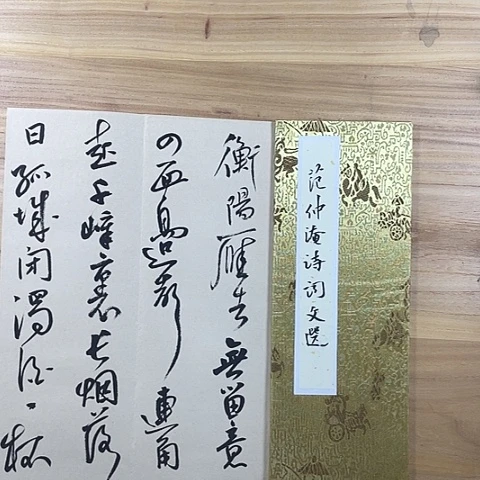 范仲淹诗词文選
衡陽雁去無留意
四面邊聲連角
起千嶂裏長烟落
日孤城闭濁酒一杯